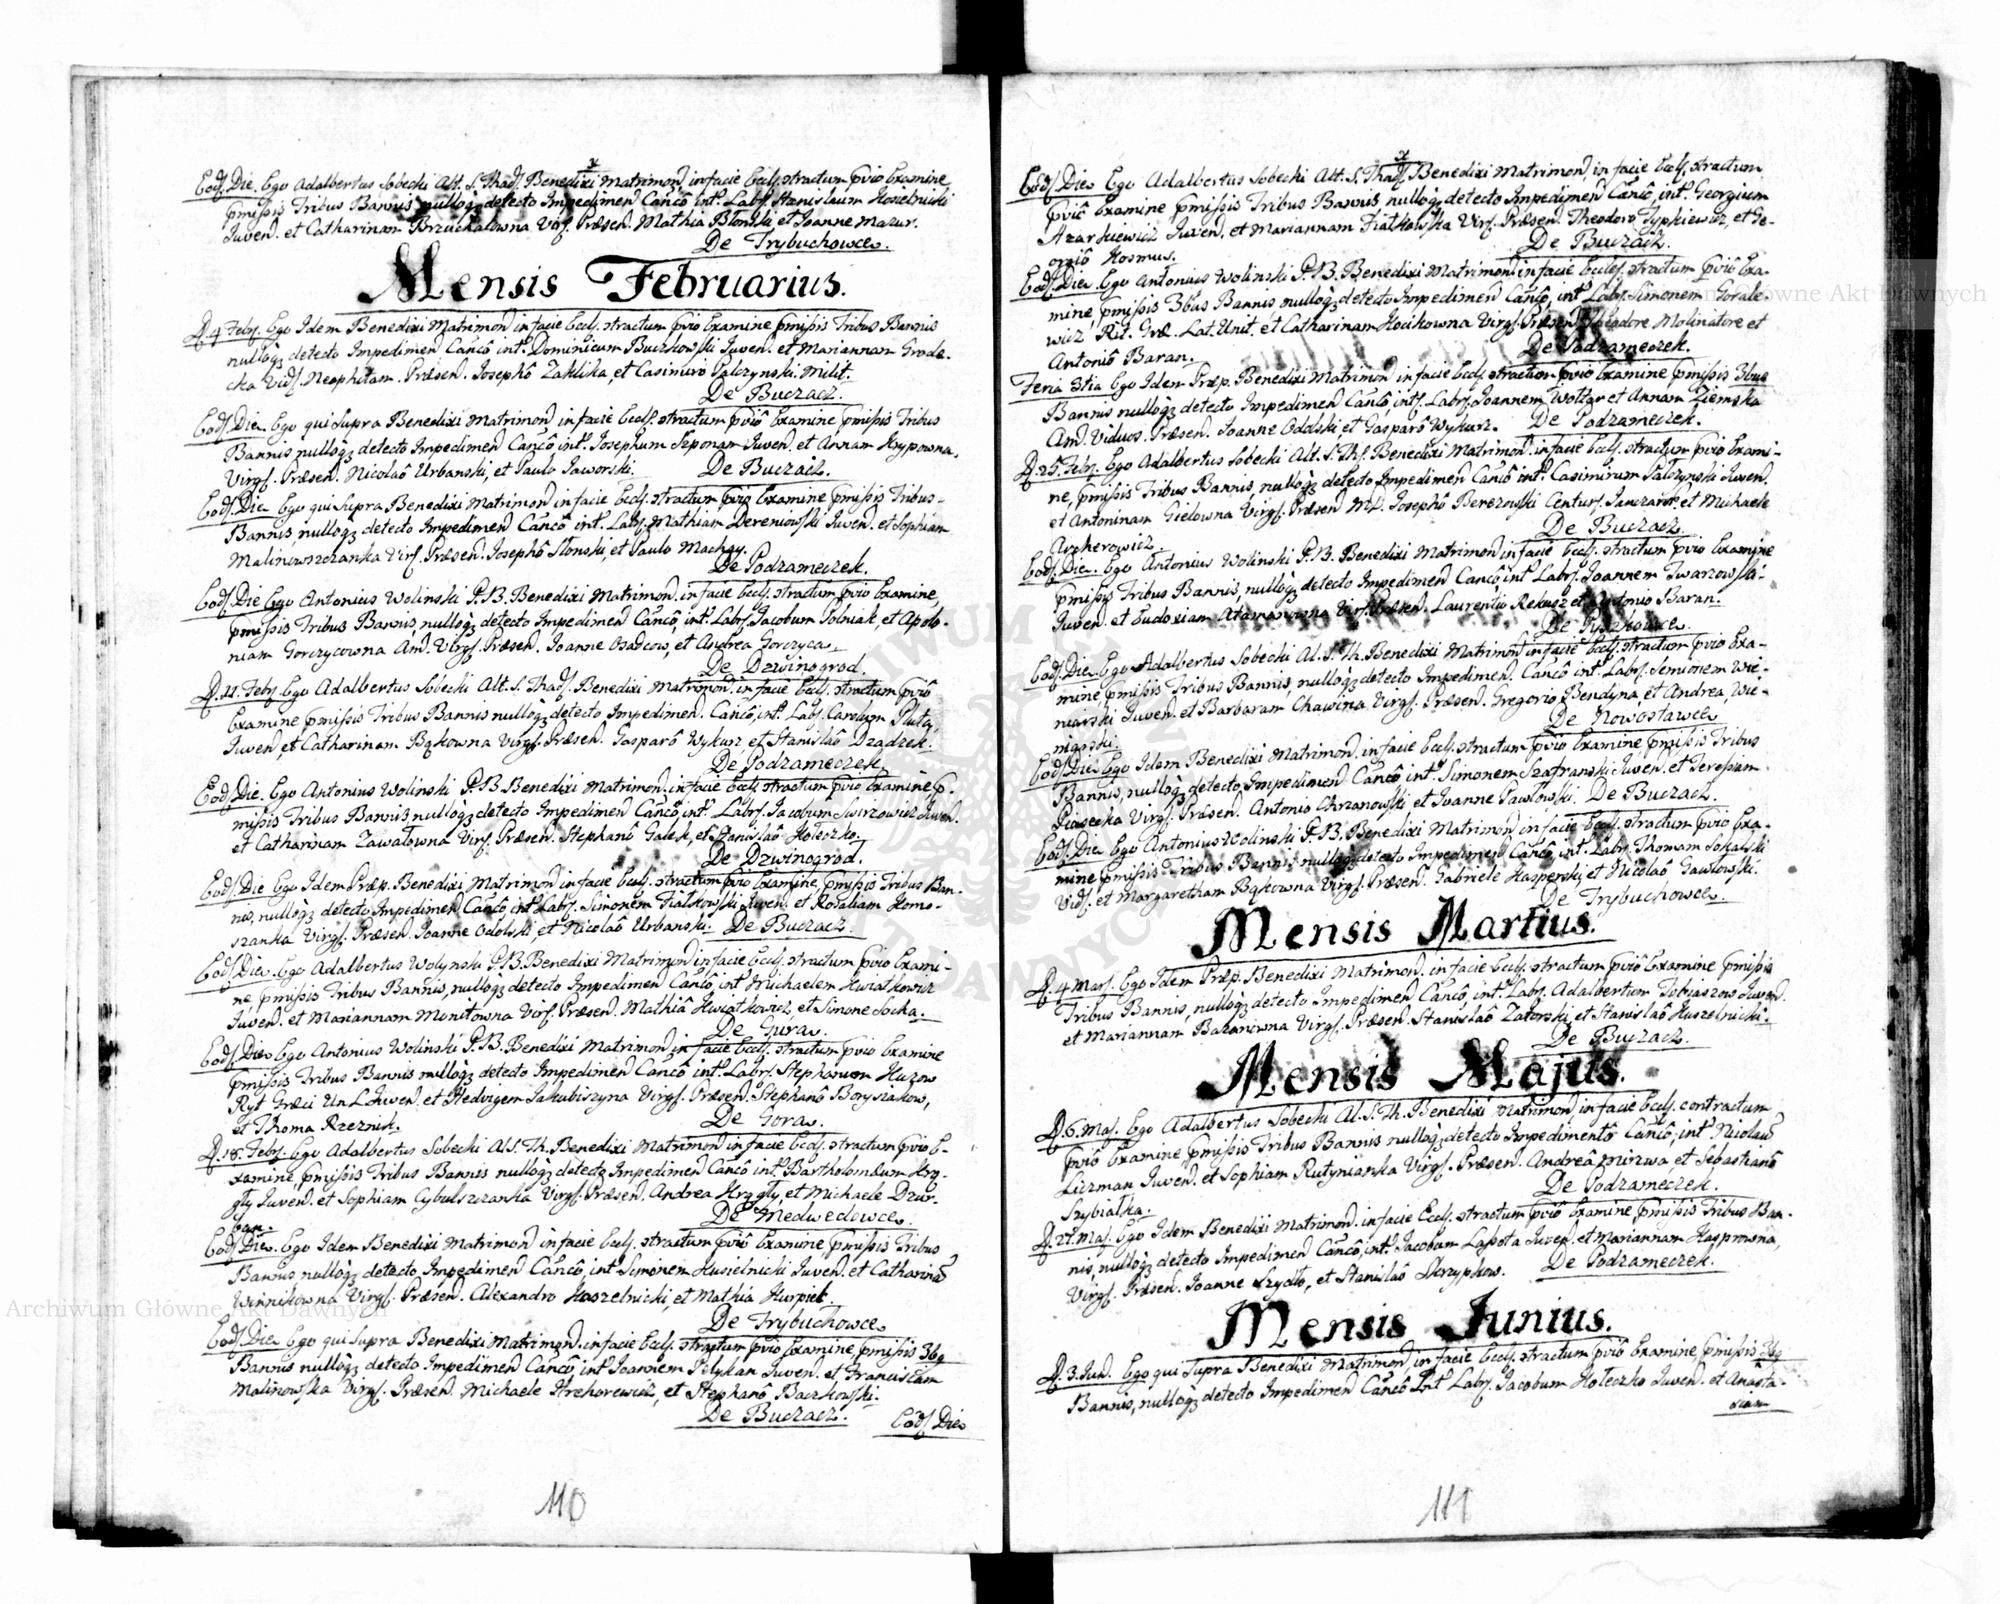 Eod. Die. Ego Adalbertus Sobecki Alt. S. Thad. Benedixi Matrimon. in facie Eccl. stractum pvio Examine,
pmissis Tribus Bannis nulloqz detecto Impedimen Cancô intr. Labs. Stanislaum Kosielnicki
Juven. et Catharinam Brzuchalowna Virg. Præsen. Mathia Blonski et Joanne Mazur.
De Trybuchowce.
Mensis Februarius.
D. 4 Febr. Ego Idem Benedixi Matrimon in facie Eccl. stractum pvio Examine pmissis Tribus Bannis
nulloqz detecto Impedimen. Cancô intr. Dominicum Buczkowski Juven. et Mariannam Grode-
cka Vid. Neophitam. Præsen. Josephô Zaklika, et Casimirô Palczynski. Milit.
De Buczacz.
Eod. Die. Ego qui Supra Benedixi Matrimon in facie Eccl. stractum pviô Examine, pmissis Tribus
Bannis nulloqz detecto Impedimen Cancô intr. Josephum Szponam Juven. et Annam Krypowna,
Virg. Præsen. Nicolaô Urbanski, et Paulo Jaworski. De Buczacz.
Eod. Die Ego qui Supra Benedixi Matrimon in facie Eccl. stractum pvio Examine pmissis Tribus
Bannis nulloqz detecto Impedimen Cancô intr. Labs. Mathiam Dereniowski Juven. et Sophiam
Malinowszczanka Virg. Præsen. Josephô Slonski, et Paulo Machay.
De Podzameczek.
Eod. Die Ego Antonius Wolinski P. B. Benedixi Matrimon. in facie Eccl. stractum pvio Examine,
pmissis Tribus Bannis, nulloqz detecto Impedimen Cancô, intr. Labs. Jacobum Solniak, et Apolo-
niam Gorczycowna Am. Virg. Præsen. Joanne Osadcow, et Andrea Gorczyca.
De Dzwinogrod.
D. 11. Febr. Ego Adalbertus Sobecki Alt. S. Thad. Benedixi Matrimon. in facie Eccl. stractum pviô
Examine pmissis Tribus Bannis nulloqz detecto Impedimen. Cancô, intr. Labs. Carolum Pluta,
Juven, et Catharinam Bąkowna Virg. Præsen. Gasparô Wykurz et Stanislaô Dządzek.
De Podzameczek.
Eod. Die. Ego Antonius Wolinski P. B. Benedixi Matrimon. in facie Eccl. stractum pvio Examine p-
missis Tribus Bannis nulloqz detecto Impedimen Cancô intr. Labs. Jacobum Swirzowicz Juven.
et Catharinam Zawałowna Virg. Præsen. Stephanô Galek, et Stanislaô Holeczko.
De Dzwinogrod.
Eod. Die Ego Idem Præp. Benedixi Matrimon in facie Eccl. stractum pvio Examine, pmissis Tribus Ban-
nis, nulloqz detecto Impedimen Cancô intr. Labs. Simonem Fialkowski Juven. et Rosaliam Homo-
szanka Virg. Præsen. Joanne Odolski, et Nicolaô Urbanski. De Buczacz.
Eod. Die. Ego Adalbertus Wolynski P. B. Benedixi Matrimon in facie Eccl. stractum pvio Exami-
ne pmissis Tribus Bannis, nulloqz detecto Impedimen Cancô, intr Michaelem Kwiatkowicz
Juven. et Mariannam Monitowna Virg. Præsen. Mathiâ Kwiatkowicz, et Simone Socha.
De Gura.
Eod. Die. Ego Antonius Wolinski P. B. Benedixi Matrimon in facie Eccl. stractum pvio Examine
pmissis Tribus Bannis nulloqz detecto Impedimen Cancô intr. Labs. Stephanum Huzow
Ryt Græci Un. Juven. et Hedvigem Jakubiszyna Virg. Præsen. Stephanô Boryszakow,
et Thoma Rzeznik.
De Gora.
D. 18. Febr. Ego Adalbertus Sobecki Al. S. Th. Benedixi Matrimon in facie Eccl. stractum pvio E-
xamine, pmissis Tribus Bannis nulloqz detecto Impedimen Cancô intr. Bartholomæum Krą-
gły Juven. et Sophiam Cybulszczanka Virg. Præsen. Andrea Krągły, et Michaele Dzur-
ban.
De Medwedowce.
Eod. Die. Ego Idem Benedixi Matrimon in facie Eccl. stractum pviô Examine, pmissis Tribus
Bannis nulloqz detecto Impedimen Cancô, intr. Simonem Kusielnicki Juven. et Catharinâ
Winnikowna Virg. Præsen. Alexandro Koszelnicki, et Mathia Kurpiek.
De Trybuchowce.
Eod. Die. Ego qui Supra Benedixi Matrimon. in facie Eccl. stractum pvio Examine, pmissis 3bq
Bannis nulloqz detecto Impedimen Cancô intr. Joannem Pelykan Juven. et Franciscam
Malinowska Virg. Præsen. Michaele Hrehorewicz, et Stephanô Baczkowski.
De Buczacz. Eod. Die
110
Eod. Die. Ego Adalbertus Sobecki Alt. S. Thad. Benedixi Matrimon, in facie Eccl. stractum
pviô Examine pmissis Tribus Bannis nulloqz detecto Impedimen Cancô, intr. Georgium
Azarkiewicz Juven. et Mariannam Fiałkowska Virg. Præsen. Theodoro Sypkiewicz, et Ge-
orgiô Kosmus.
De Buczacz.
Eod. Die. Ego Antonius Wolinski P. B. Benedixi Matrimon in facie Eccles. stractum pviô Exa-
mine, pmissis 3bus Bannis nulloqz detecto Impedimen Cancô, intr. Labs. Simonem Gorale-
wicz Rit. Græ. Lat. Unit. et Catharinam Kocikowna Virg. Præsen. Theodore Molinatore et
Antoniô Baran.
De Podzameczek.
Feria 3tia Ego Idem Præp. Benedixi Matrimon in facie Eccl. stractum pvio Examine pmissis 3bus
Bannis nulloqz detecto Impedimen Cancô, intr. Labs. Joannem Woltar et Annam Ziemska
Am. Viduos. Præsen. Joanne Odolski, et Gasparô Wykurz. De Podzameczek.
D. 25. Febr. Ego Adalbertus Sobecki Alt. S. Th. Benedixi Matrimon. in facie Eccl. stractum pvio Exami-
ne, pmissis Tribus Bannis, nulloqz detecto Impedimen Cancô intr. Casimirum Palczynski Juven.
et Antoninam Gielowna Virg. Præsen. Josephô Berezowski et Michaele
De Buczacz.
Eod. Die. Ego Antonius Wolinski P. B. Benedixi Matrimon in facie Eccl. stractum pvio Examine
pmissis Tribus Bannis, nulloqz detecto Impedimen Cancô, intr. Labs. Joannem Twarzowski
Juven. et Eudoxiam Atamanowna Virg. Præsen. Laurentio Rekusz et Antonio Baran.
Eod. Die. Ego Adalbertus Sobecki Al. S. Th. Benedixi Matrimon in facie Eccl. stractum pvio Exa-
mine, pmissis Tribus Bannis, nulloqz detecto Impedimen. Cancô intr. Labs. Semionem Wie-
niarski Juven. et Barbaram Chawina Virg. Præsen. Gregorio Bendyna, et Andrea, Wie-
niarski.
De Nowostawce.
Eod. Die. Ego Idem Benedixi Matrimon. in facie Eccl. stractum pvio Examine pmissis Tribus
Bannis, nulloqz detecto Impedimen Cancô intr. Simonem Szafranski Juven. et Teressiam
Piasecka Virg. Præsen. Antonio Chrzanowski et Joanne Pawłowski. De Buczacz.
Eod. Die Ego Antonius Wolinski P. B. Benedixi Matrimon in facie Eccl. stractum pviô Exa-
mine, pmissis Tribus Bannis nulloqz detecto Impedimen Cancô, intr. Labs. Thomam Sokalski
Vid. et Margaretham Bąkowna Virg. Præsen. Gabriele Kasperski, et Nicolaô Gawłowski.
De Trybuchowce.
Mensis Martius.
D. 4 Mar. Ego Idem Præp. Benedixi Matrimon. in facie Eccl. stractum pviô Examine pmissis
Tribus Bannis, nulloqz detecto Impedimen Cancô, intr. Labs. Adalbertum Tobiaszow Juven.
et Mariannam Baranowna Virg. Præsen. Stanislaô Zatorski, et Stanislaô Kuszelnicki.
De Buczacz.
Mensis Majus.
D. 6. Maj. Ego Adalbertus Sobecki Al. S. Th. Benedixi Matrimon in facie Eccl. contractum
pviô Examine pmissis Tribus Bannis nulloqz detecto Impedimentô Cancô, intr. Nicolaû
Liczman Juven. et Sophiam Rutynianka Virg. Præsen. Andreâ Mirzwa et Sebastianô
Trybialka.
De Podzameczek.
D. 27. Maj. Ego Idem Benedixi Matrimon. in facie Eccl. stractum pviô Examine, pmissis Tribus Ban-
nis, nulloqz detecto Impedimen Cancô, intr. Jacobum Lassota Juven. et Mariannam Kasprowna,
Virg. Præsen. Joanne Szydło, et Stanislaô Skrypkow. De Podzameczek.
Mensis Junius.
D. 3. Jun. Ego qui Supra Benedixi Matrimon, in facie Eccl. stractum pviô Examine, pmissis 3bq
Bannis, nulloqz detecto Impedimen Cancô Intr Labs. Jacobum Holeczko Juven. et Anasta-
siam
111
Archiwum Główne Akt Dawnych